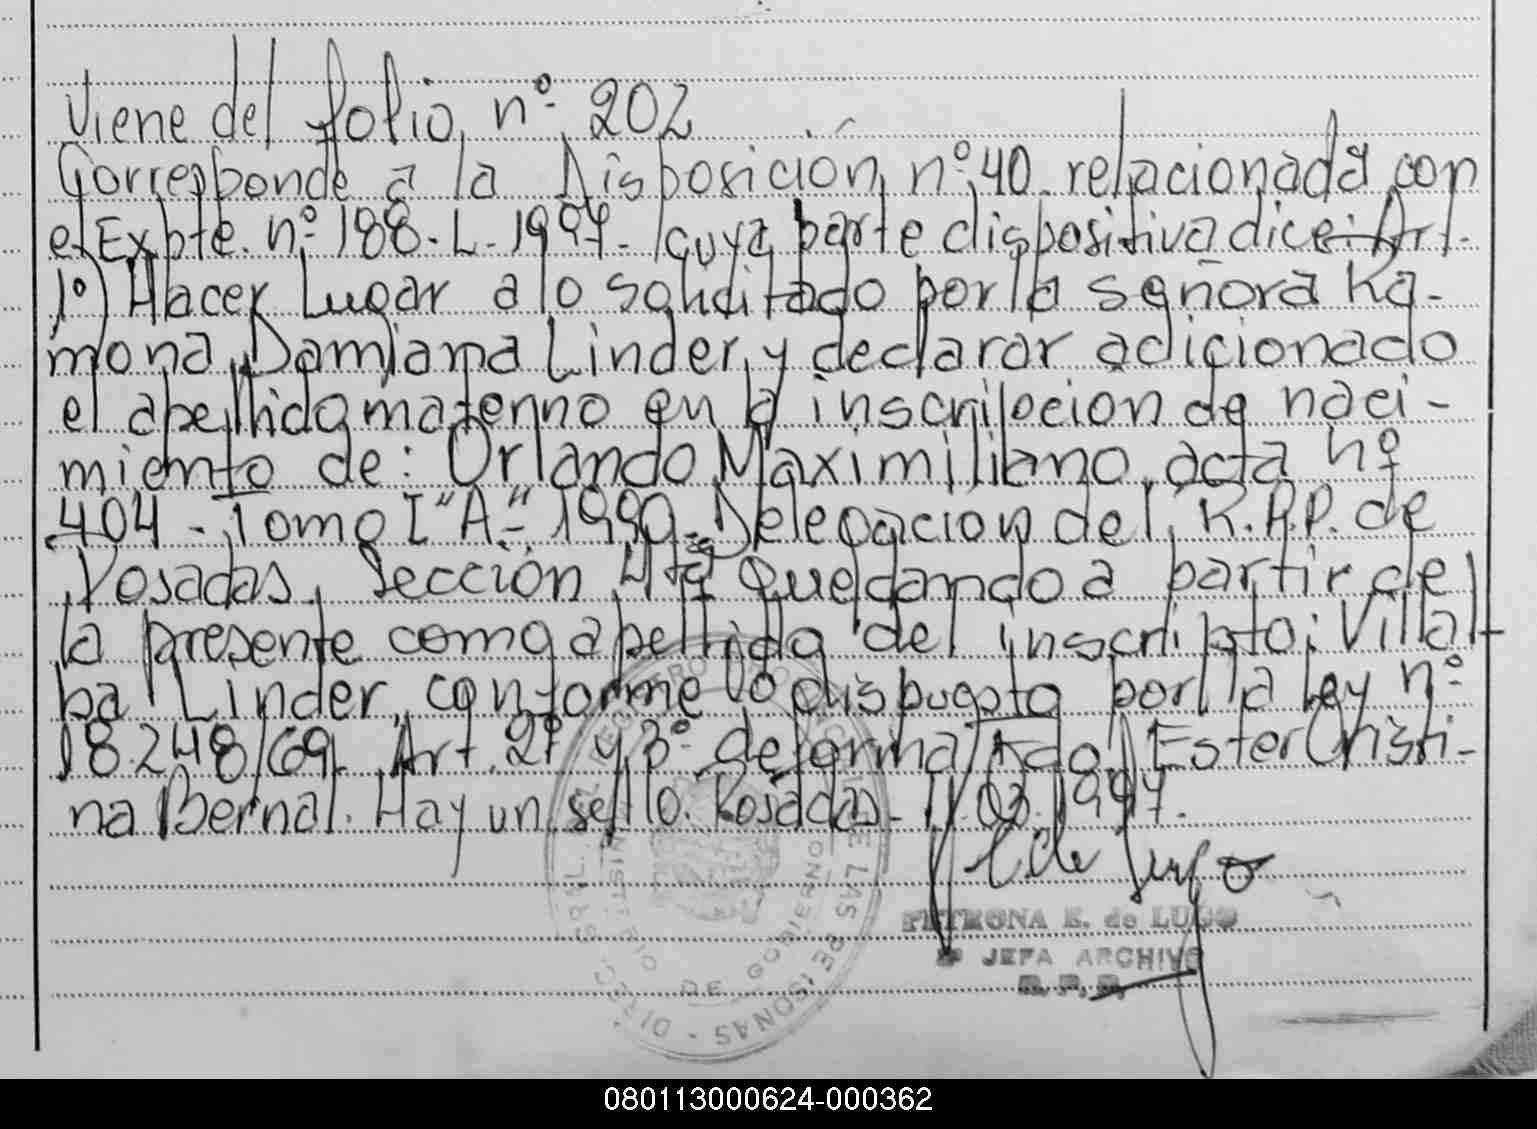 Viene del folio nº 202
Corresponde a la Disposición nº 40 relacionada con
el Expte. nº 188-L-1997- cuya parte dispositiva dice: Art.
1º) Hacer Lugar a lo solicitado por la señora Ra-
mona Damiana Linder, y declarar adicionado
el apellido materno en la inscripcion de naci-
miento de: Orlando Maximiliano, acta nº
404 - Tomo I "A"- 1990. Delegacion del R.P.P. de
Posadas, Sección 4ta quedando a partir de
la presente como apellido del inscripto: Villal-
ba Linder, conforme lo dispuesto por la ley nº
18.248/69. Art. 2º y 3º de forma. Fdo. Ester Cristi-
na Bernal. Hay un sello. Posadas - 11.03.1997.
PETRONA E. de LUGO
JEFA ARCHIVO
R. P. P.
DE LAS PERSONAS - DIREC. GRAL.
MINISTERIO DE GOBIERNO
080113000624-000362